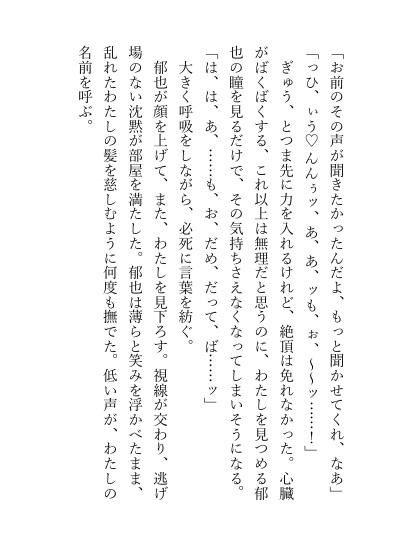 「お前のその声が聞きたかったんだよ、もっと聞かせてくれ、なあ」
「っひ、ぃう♡んんぅッ、あ、あ、ッも、ぉ、～～ッ……！」
　ぎゅう、とつま先に力を入れるけれど、絶頂は免れなかった。心臓
がばくばくする、これ以上は無理だと思うのに、わたしを見つめる郁
也の瞳を見るだけで、その気持ちさえなくなってしまいそうになる。
「は、は、あ、……も、お、だめ、だって、ば……ッ」
　大きく呼吸をしながら、必死に言葉を紡ぐ。
　郁也が顔を上げて、また、わたしを見下ろす。視線が交わり、逃げ
場のない沈黙が部屋を満たした。郁也は薄らと笑みを浮かべたまま、
乱れたわたしの髪を慈しむように何度も撫でた。低い声が、わたしの
名前を呼ぶ。